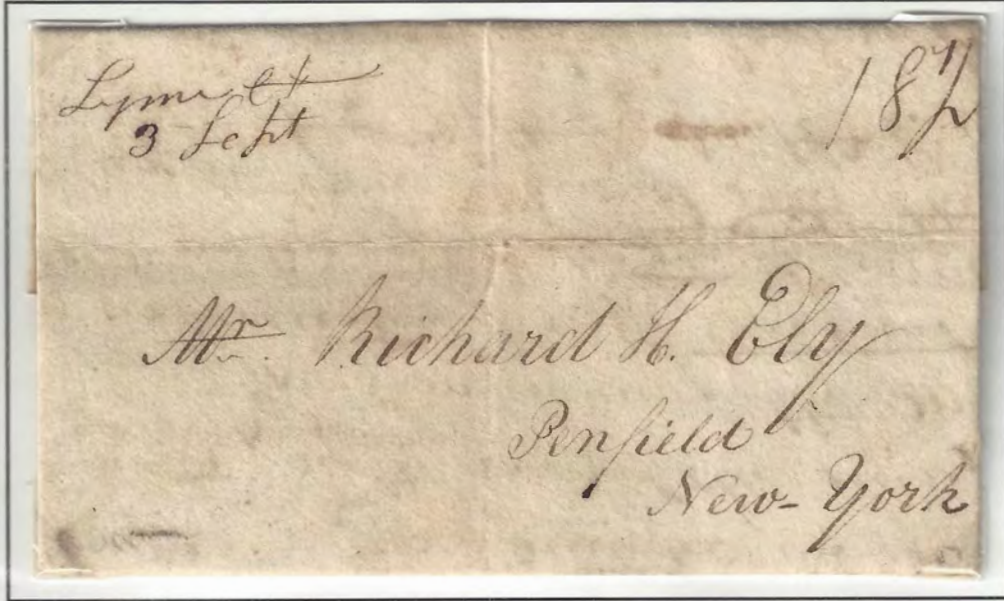 Lyme Ct
3 Sept
18½
Mr. Richard H. Ely
Penfield
New-York